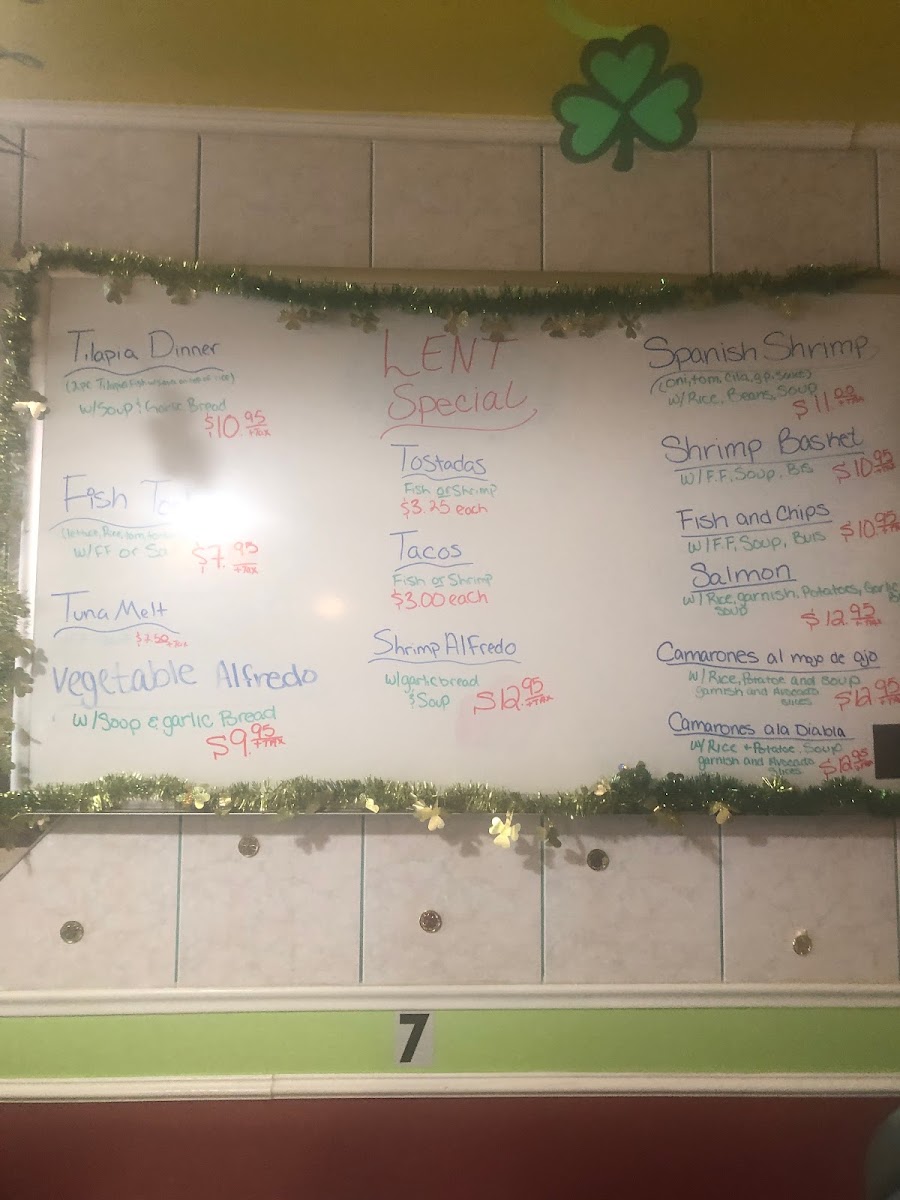 Tilapia Dinner
w/Soup & Garlic Bread
$10.95 +TAX
Fish
w/FF or
$7.95 +TAX
Tuna Melt
$7.50 +TAX
Vegetable Alfredo
w/Soop & garlic Bread
$9.95 +TAX
LENT
Special
Tostadas
Fish or Shrimp
$3.25 each
Tacos
Fish or Shrimp
$3.00 each
Shrimp Alfredo
w/garlic bread
& Soup $12.95 +TAX
Spanish Shrimp
w/Rice, Beans, Soup
$11.00 +TAX
Shrimp Basket
w/F.F, Soup, $10.95 +TAX
Fish and Chips
w/F.F, Soup, $10.95 +TAX
Salmon
w/Rice, garnish, Potatoes, Garlic
Soup
$12.95 +TAX
Camarones al mojo de ajo
w/Rice, Potatoe and soup
garnish and Avocado
slices $12.95 +TAX
Camarones ala Diabla
w/Rice + Potatoe. Soup
garnish and Avocado
Slices $12.95 +TAX
7